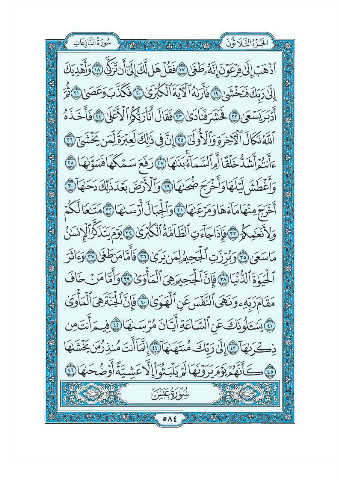 سُورَةُ النَّازِعَاتِ الجُزْءُ الثَّلَاثُونَ
اذْهَبْ إِلَىٰ فِرْعَوْنَ إِنَّهُ طَغَىٰ ١٧ فَقُلْ هَل لَّكَ إِلَىٰ أَن تَزَكَّىٰ ١٨ وَأَهْدِيَكَ
إِلَىٰ رَبِّكَ فَتَخْشَىٰ ١٩ فَأَرَاهُ الْآيَةَ الْكُبْرَىٰ ٢٠ فَكَذَّبَ وَعَصَىٰ ٢١ ثُمَّ
أَدْبَرَ يَسْعَىٰ ٢٢ فَحَشَرَ فَنَادَىٰ ٢٣ فَقَالَ أَنَا رَبُّكُمُ الْأَعْلَىٰ ٢٤ فَأَخَذَهُ
اللَّهُ نَكَالَ الْآخِرَةِ وَالْأُولَىٰ ٢٥ إِنَّ فِي ذَٰلِكَ لَعِبْرَةً لِّمَن يَخْشَىٰ ٢٦
ءَأَنتُمْ أَشَدُّ خَلْقًا أَمِ السَّمَاءُ بَنَاهَا ٢٧ رَفَعَ سَمْكَهَا فَسَوَّاهَا ٢٨
وَأَغْطَشَ لَيْلَهَا وَأَخْرَجَ ضُحَاهَا ٢٩ وَالْأَرْضَ بَعْدَ ذَٰلِكَ دَحَاهَا ٣٠
أَخْرَجَ مِنْهَا مَاءَهَا وَمَرْعَاهَا ٣١ وَالْجِبَالَ أَرْسَاهَا ٣٢ مَتَاعًا لَّكُمْ
وَلِأَنْعَامِكُمْ ٣٣ فَإِذَا جَاءَتِ الطَّامَّةُ الْكُبْرَىٰ ٣٤ يَوْمَ يَتَذَكَّرُ الْإِنسَانُ
مَا سَعَىٰ ٣٥ وَبُرِّزَتِ الْجَحِيمُ لِمَن يَرَىٰ ٣٦ فَأَمَّا مَن طَغَىٰ ٣٧ وَءَاثَرَ
الْحَيَوٰةَ الدُّنْيَا ٣٨ فَإِنَّ الْجَحِيمَ هِيَ الْمَأْوَىٰ ٣٩ وَأَمَّا مَنْ خَافَ
مَقَامَ رَبِّهِ وَنَهَى النَّفْسَ عَنِ الْهَوَىٰ ٤٠ فَإِنَّ الْجَنَّةَ هِيَ الْمَأْوَىٰ
٤١ يَسْأَلُونَكَ عَنِ السَّاعَةِ أَيَّانَ مُرْسَاهَا ٤٢ فِيمَ أَنتَ مِن
ذِكْرَاهَا ٤٣ إِلَىٰ رَبِّكَ مُنتَهَاهَا ٤٤ إِنَّمَا أَنتَ مُنذِرُ مَن يَخْشَاهَا
٤٥ كَأَنَّهُمْ يَوْمَ يَرَوْنَهَا لَمْ يَلْبَثُوا إِلَّا عَشِيَّةً أَوْ ضُحَاهَا ٤٦
سُورَةُ عَبَسَ
٥٨٤